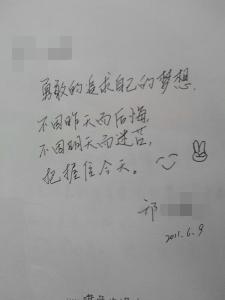 勇敢的追求自己的梦想.
不因昨天而后悔,
不因明天而迷茫,
把握住今天。
祁
2011.6.9